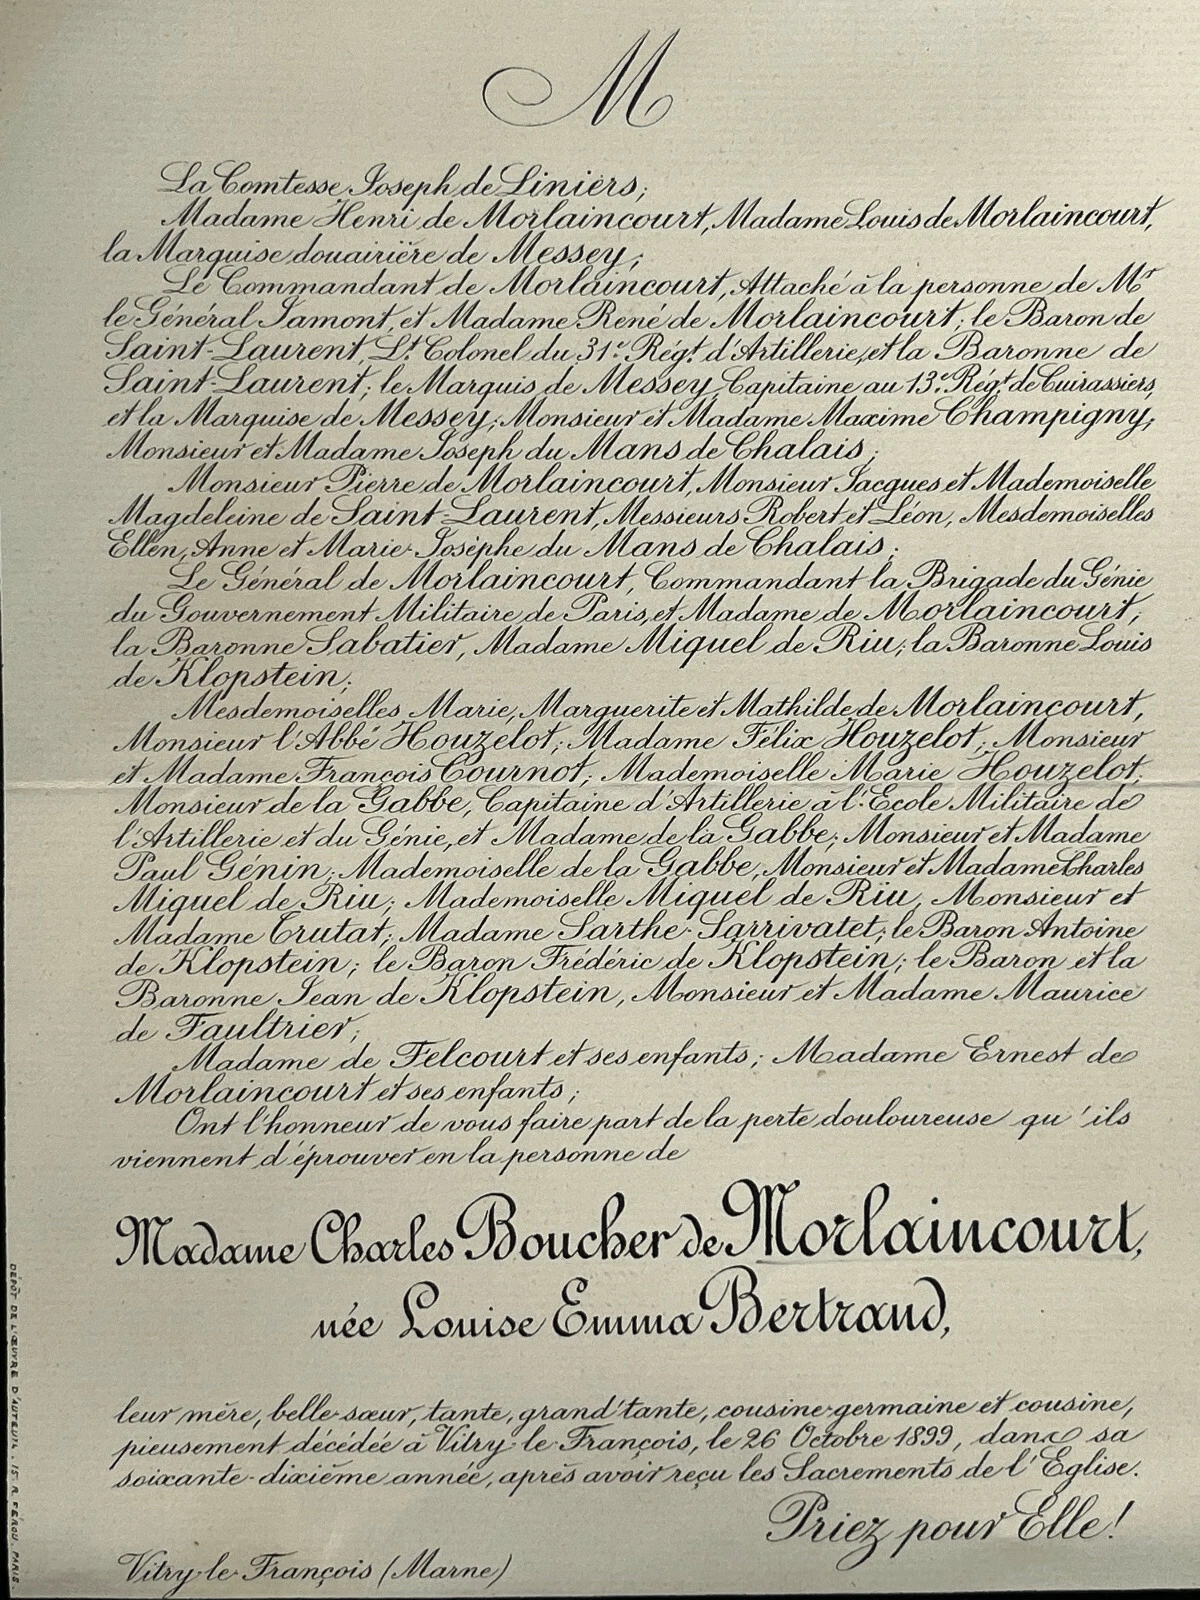 M
La Comtesse Joseph de Liniers;
Madame Henri de Morlaincourt, Madame Louis de Morlaincourt,
la Marquise douairière de Messey;
Le Commandant de Morlaincourt, Attaché à la personne de Mr
le Général Jamont, et Madame René de Morlaincourt; le Baron de
Saint-Laurent, Lt Colonel du 31e Régt d'Artillerie, et la Baronne de
Saint-Laurent; le Marquis de Messey, Capitaine au 13e Régt de Cuirassiers,
et la Marquise de Messey; Monsieur et Madame Maxime Champigny;
Monsieur et Madame Joseph du Mans de Chalais;
Monsieur Pierre de Morlaincourt, Monsieur Jacques et Mademoiselle
Magdeleine de Saint-Laurent, Messieurs Robert et Léon, Mesdemoiselles
Ellen, Anne et Marie-Josèphe du Mans de Chalais;
Le Général de Morlaincourt, Commandant la Brigade du Génie
du Gouvernement Militaire de Paris, et Madame de Morlaincourt;
la Baronne Sabatier, Madame Miquel de Riu; la Baronne Louis
de Klopstein;
Mesdemoiselles Marie, Marguerite et Mathilde de Morlaincourt,
Monsieur l'Abbé Houzelot; Madame Félix Houzelot; Monsieur
et Madame François Cournot; Mademoiselle Marie Houzelot;
Monsieur de la Gabbe, Capitaine d'Artillerie à l'Ecole Militaire de
l'Artillerie et du Génie, et Madame de la Gabbe; Monsieur et Madame
Paul Génin; Mademoiselle de la Gabbe, Monsieur et Madame Charles
Miquel de Riu; Mademoiselle Miquel de Riu, Monsieur et
Madame Trutat; Madame Sarthe-Sarrivatet; le Baron Antoine
de Klopstein; le Baron Frédéric de Klopstein; le Baron et la
Baronne Jean de Klopstein, Monsieur et Madame Maurice
de Faultrier;
Madame de Felcourt et ses enfants; Madame Ernest de
Morlaincourt et ses enfants;
Ont l'honneur de vous faire part de la perte douloureuse qu'ils
viennent d'éprouver en la personne de
Madame Charles Boucher de Morlaincourt,
née Louise Emma Bertrand,
leur mère, belle-sœur, tante, grand'tante, cousine-germaine et cousine,
pieusement décédée à Vitry-le-François, le 26 Octobre 1899, dans sa
soixante-dixième année, après avoir reçu les Sacrements de l'Eglise.
Priez pour Elle!
Vitry-le-François (Marne)
DÉPÔT DE L'ŒUVRE D'AUTEUIL. 15. R. FÉROU. PARIS.